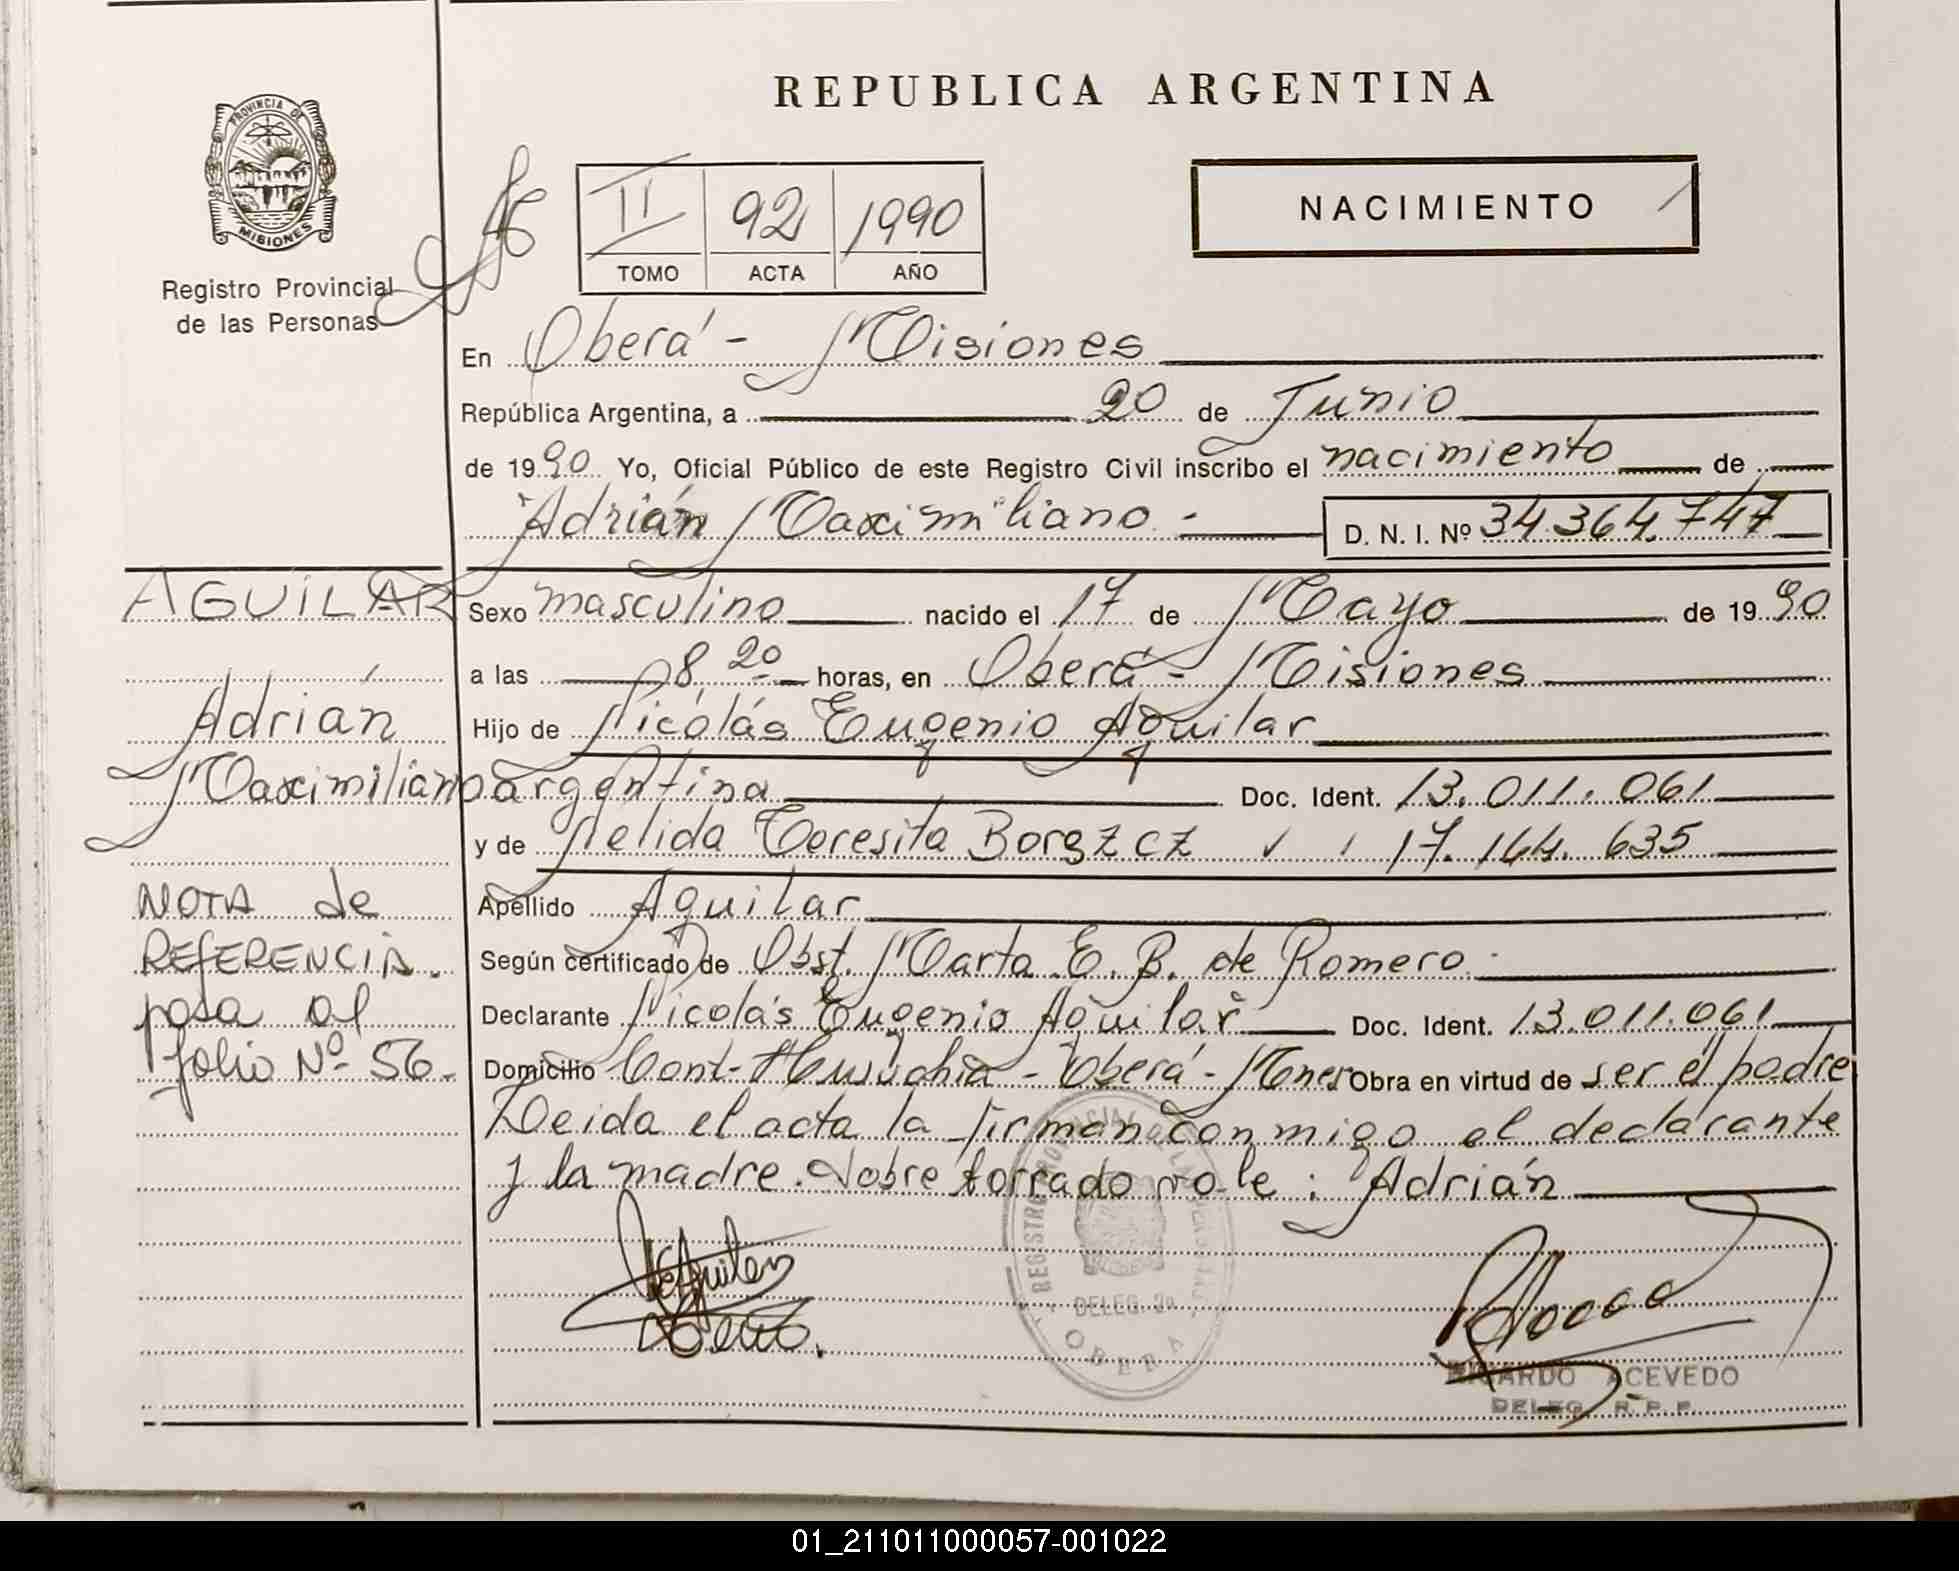 REPUBLICA ARGENTINA
PROVINCIA DE
MISIONES
Registro Provincial
de las Personas
II 92 1990
TOMO ACTA AÑO
NACIMIENTO
En Oberá - Misiones
República Argentina, a 20 de Junio
de 1990 Yo, Oficial Público de este Registro Civil inscribo el nacimiento de
Adrián Maximiliano.- D. N. I. Nº 34.364.747
AGUILAR
Adrián
Maximiliano
NOTA de
REFERENCIA.
pasa al
folio Nº 56.
Sexo masculino nacido el 17 de Mayo de 1990
a las 8,20 horas, en Oberá - Misiones
Hijo de Nicolás Eugenio Aguilar
argentina Doc. Ident. 13.011.061
y de Nelida Teresita 17.164.635
Apellido Aguilar
Según certificado de Obst. Marta E. B. de Romero.
Declarante Nicolás Eugenio Aguilar Doc. Ident. 13.011.061
Domicilio Oberá - Mnes Obra en virtud de ser el padre
Leida el acta la firman conmigo el declarante
y la madre. Sobre borrado vale: Adrián
REGISTRO PROVINCIAL DE LAS PERSONAS
DELEG. 2a
OBERA
RICARDO ACEVEDO
DELEG. R. P. P.
01_211011000057-001022